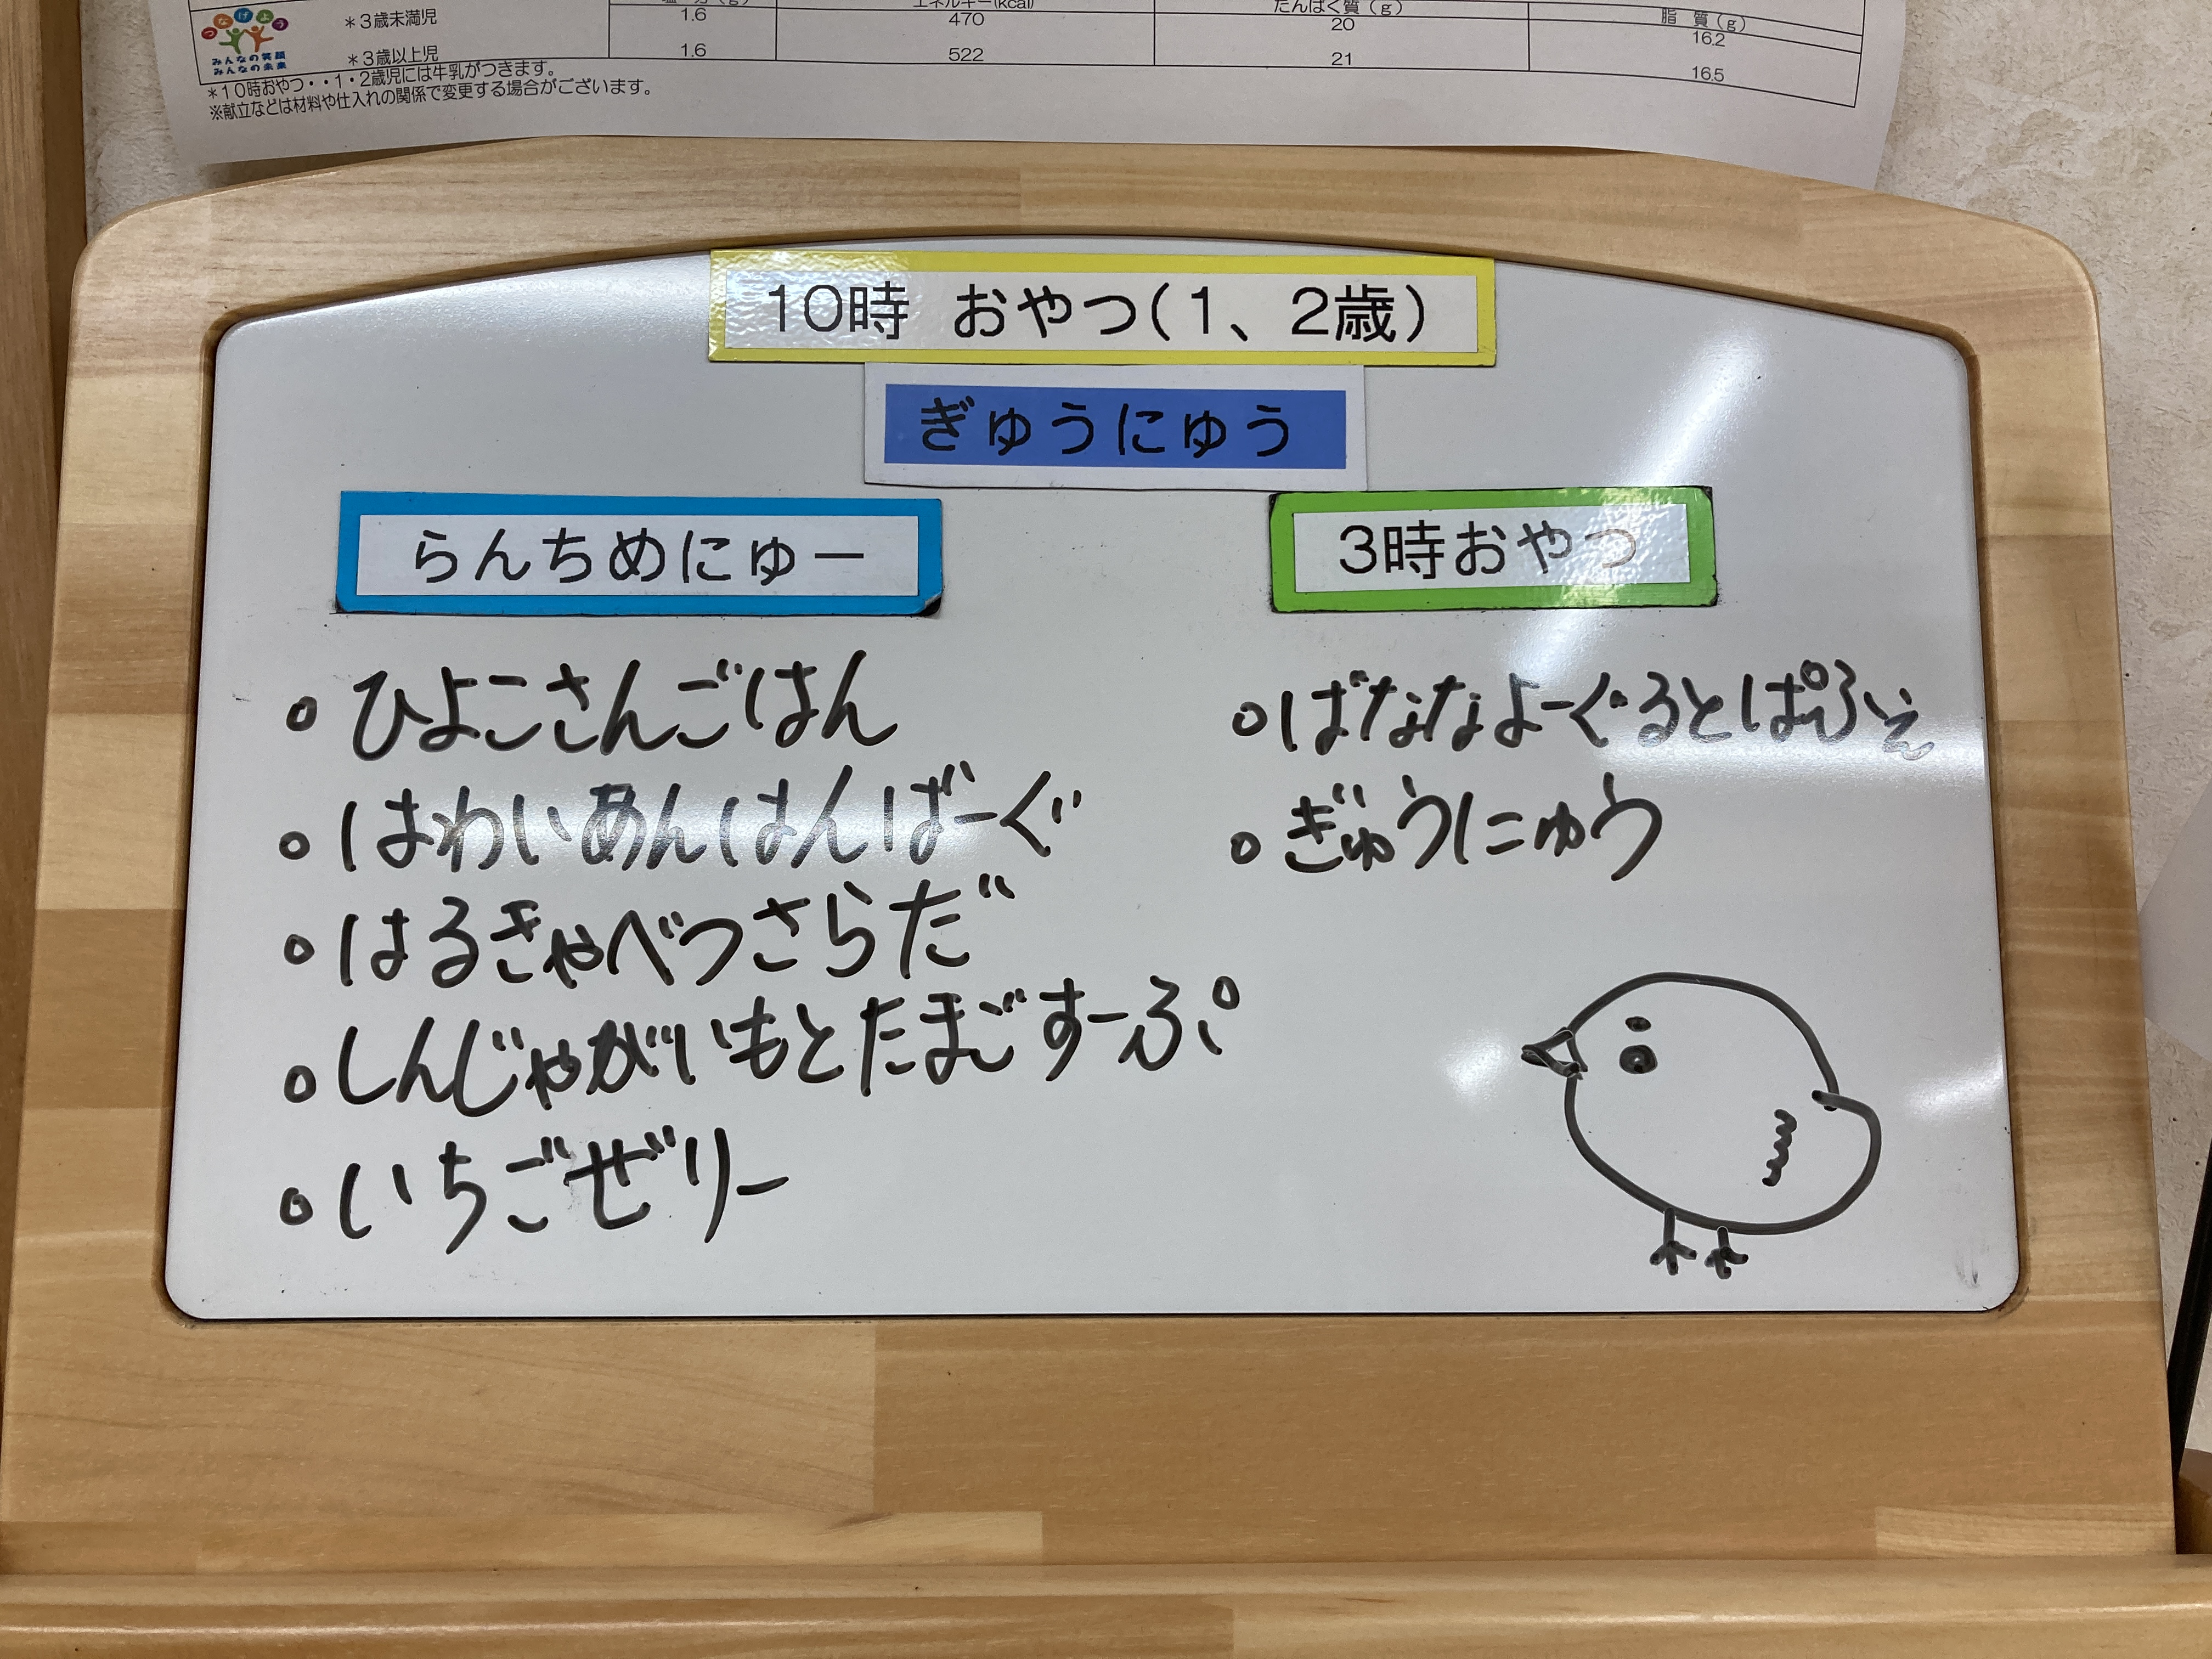 つなげよう
みんなの笑顔
みんなの未来
エネルギー(kcal) たんぱく質(g) 脂 質(g)
＊3歳未満児 1.6 470 20 16.2
＊3歳以上児 1.6 522 21 16.5
＊10時おやつ・・1・2歳児には牛乳がつきます。
※献立などは材料や仕入れの関係で変更する場合がございます。
10時 おやつ(1、2歳)
ぎゅうにゅう
らんちめにゅー
。ひよこさんごはん
。はわいあんはんばーぐ
。はるきゃべつさらだ
。しんじゃがいもとたまごすーぷ
。いちごぜりー
3時おやつ
。ばななよーぐるとぱふぇ
。ぎゅうにゅう